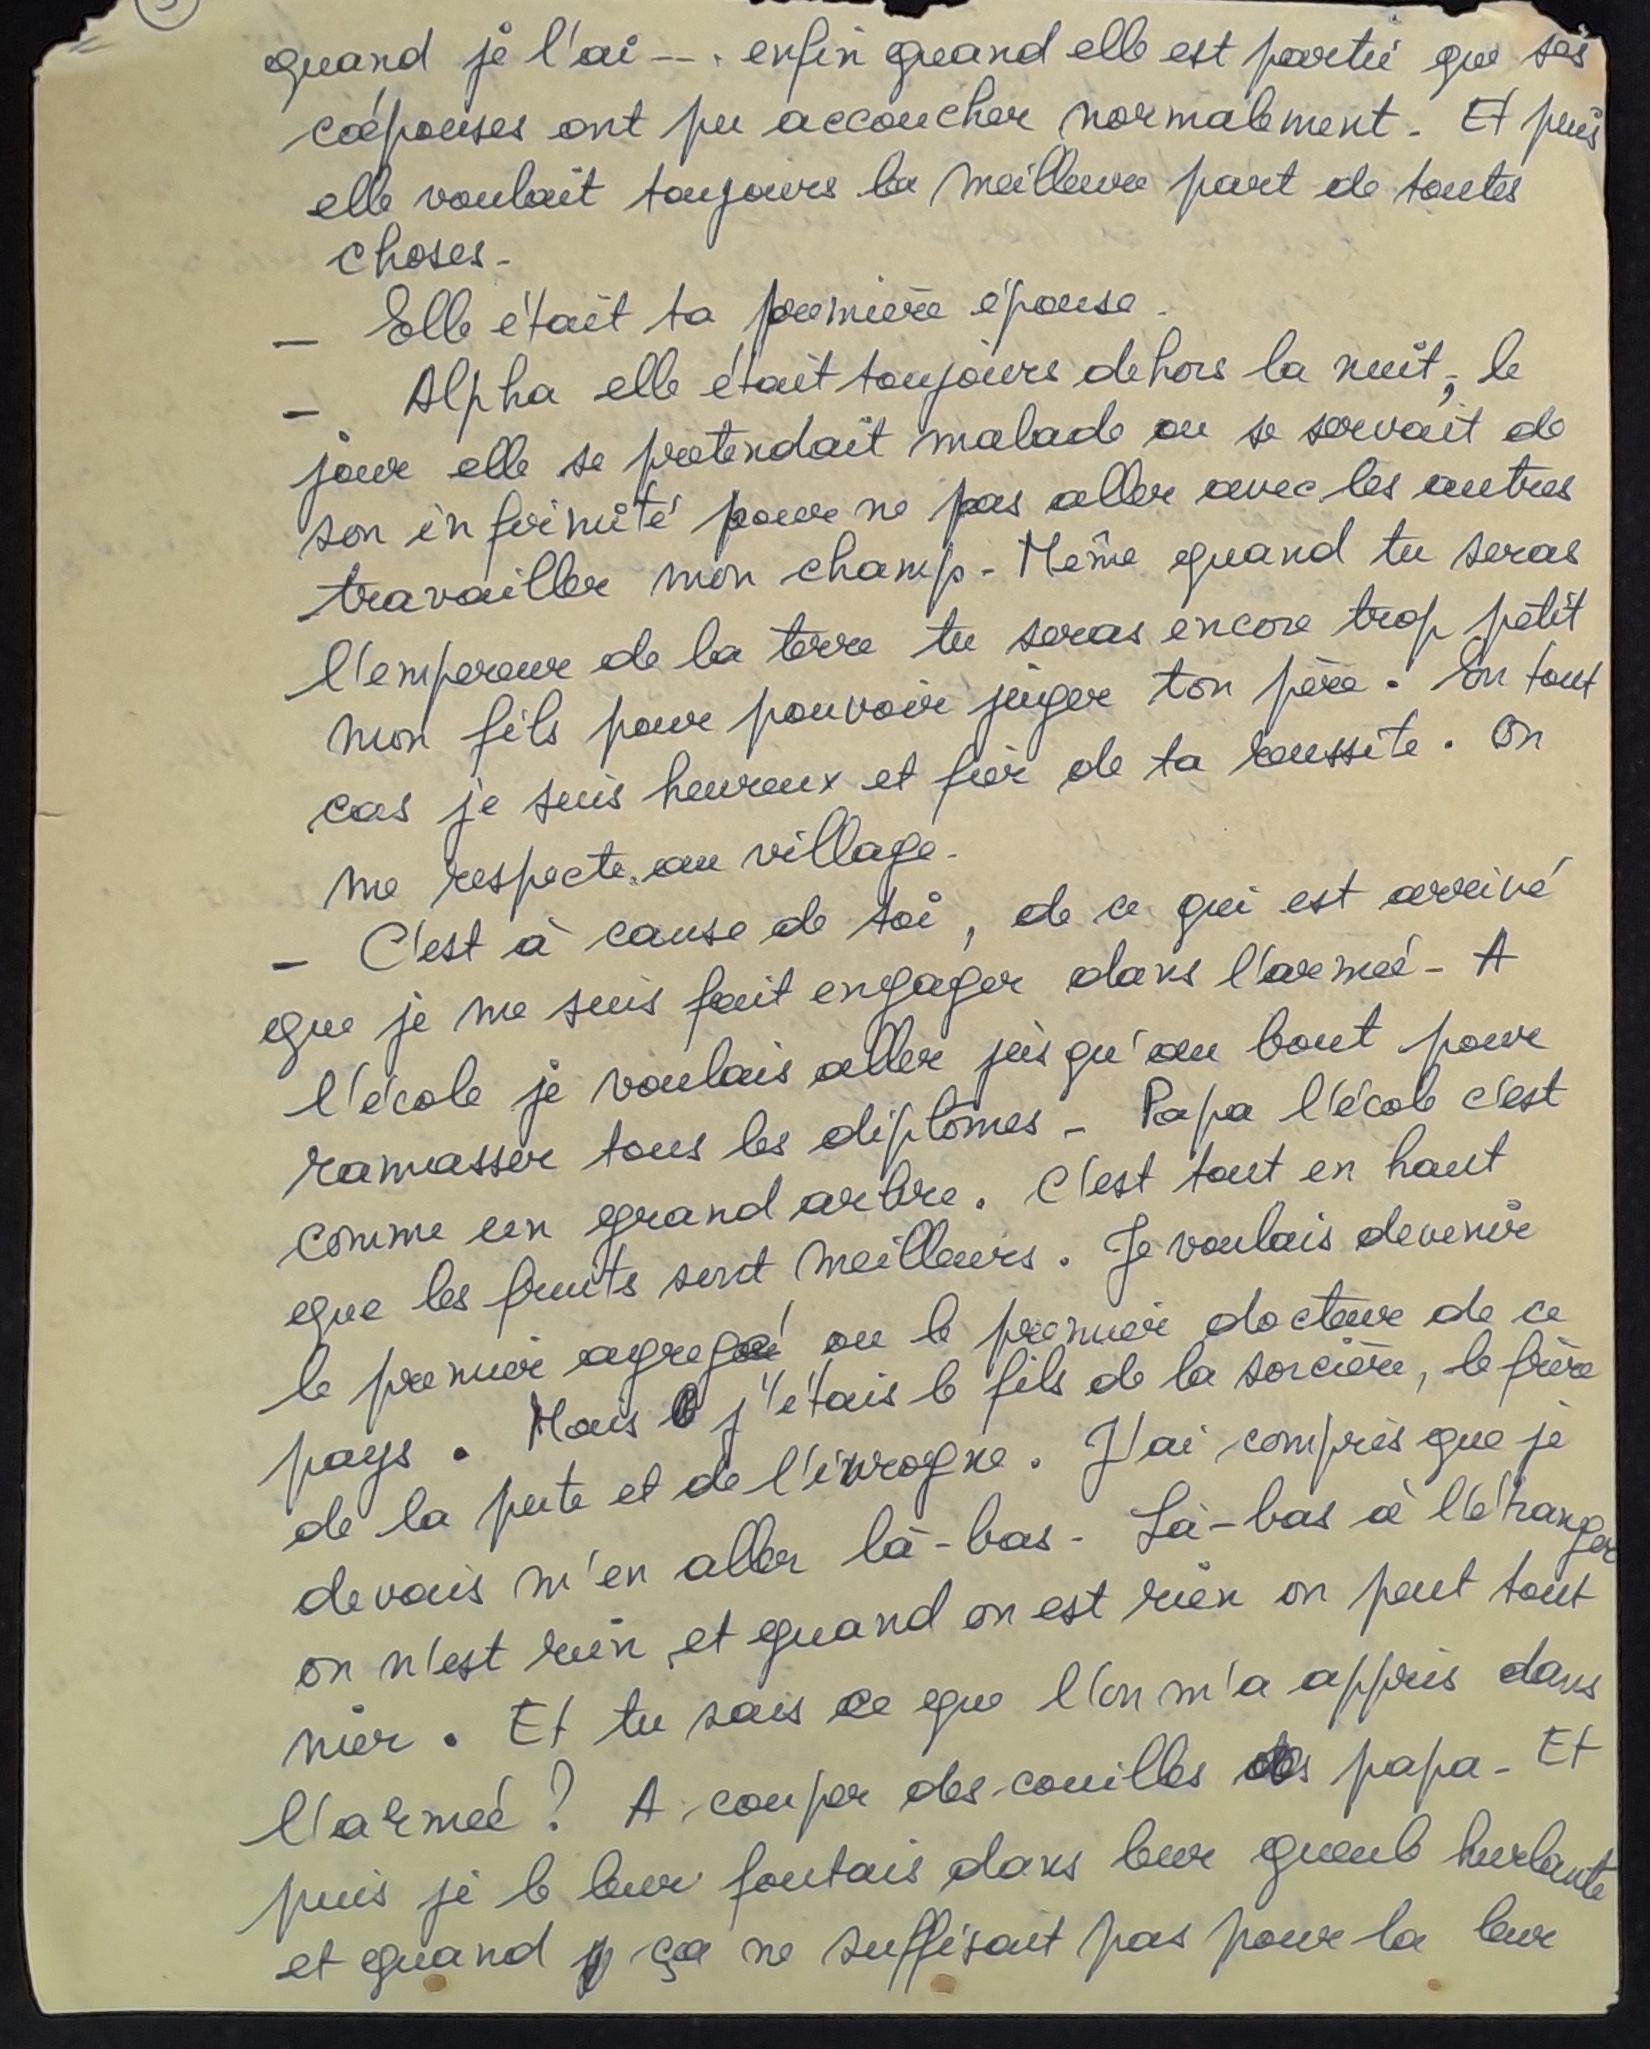 quand je l'ai --. enfin quand elle est partie que ses
coépouses ont pu accoucher normalement. Et puis
elle voulait toujours la meilleure part de toutes
choses.
_ Elle était ta première épouse.
_ Alpha elle était toujours dehors la nuit, le
jour elle se pretendait malade ou se servait de
son infirmité pour ne pas aller avec les autres
travailler mon champ. Même quand tu seras
l'empereur de la terre tu seras encore trop petit
mon fils pour pouvoir juger ton père. En tout
cas je suis heureux et fier de ta reussite. On
me respecte au village.
_ C'est à cause de toi, de ce qui est arrivé
que je me suis fait engager dans l'armeé. A
l'école je voulais aller jusqu'au bout pour
ramasser tous les diplômes. Papa l'école c'est
comme un grand arbre. C'est tout en haut
que les fruits sont meilleurs. Je voulais devenir
le premier agregé ou le premier docteur de ce
pays. Mais j'étais le fils de la sorcière, le frère
de la pute et de l'ivrogne. J'ai compris que je
devais m'en aller là-bas. Là-bas à l'étranger
on n'est rien et quand on est rien on peut tout
nier. Et tu sais ce que l'on m'a appris dans
l'armeé ? A couper des couilles papa. Et
puis je le leur foutais dans leur gueule hurlante
et quand ça ne suffisait pas pour la leur